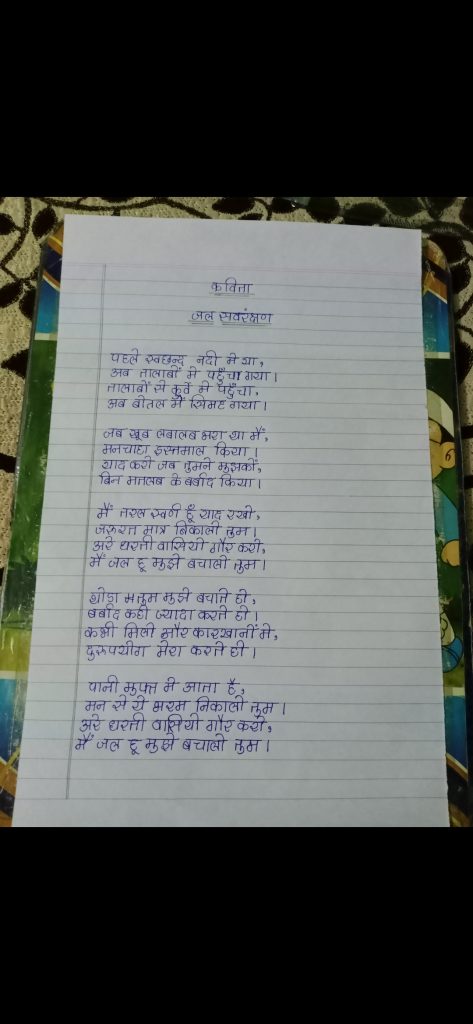 कविता
जल सवंरक्षण
पहले स्वछन्द नदी मे था,
अब तालाबों मे पहुँचा गया।
तालाबों से कुवें मे पहुँचा,
अब बोतल में सिमट गया।
जब खूब लबालब भरा था मैं,
मनचाहा इस्तमाल किया।
याद करो जब तुमने मुझकों,
बिन मतलब के बर्बाद किया।
मैं तरल स्वर्ण हूँ याद रखो,
जरुरत मात्र निकालो तुम।
अरे धरती वासियो गौर करो,
मैं जल हू मुझे बचालो तुम।
थोड़ा मतुम मुझे बचाते हो,
बर्बाद कही ज्यादा करते हो।
कभी मिलो और कारखानों मे,
दुरुपयोग मेरा करते हो।
पानी मुफ्त मे आता है,
मन से ये भरम निकालो तुम।
अरे धरती वासियो गौर करो,
मैं जल हू मुझे बचालो तुम।